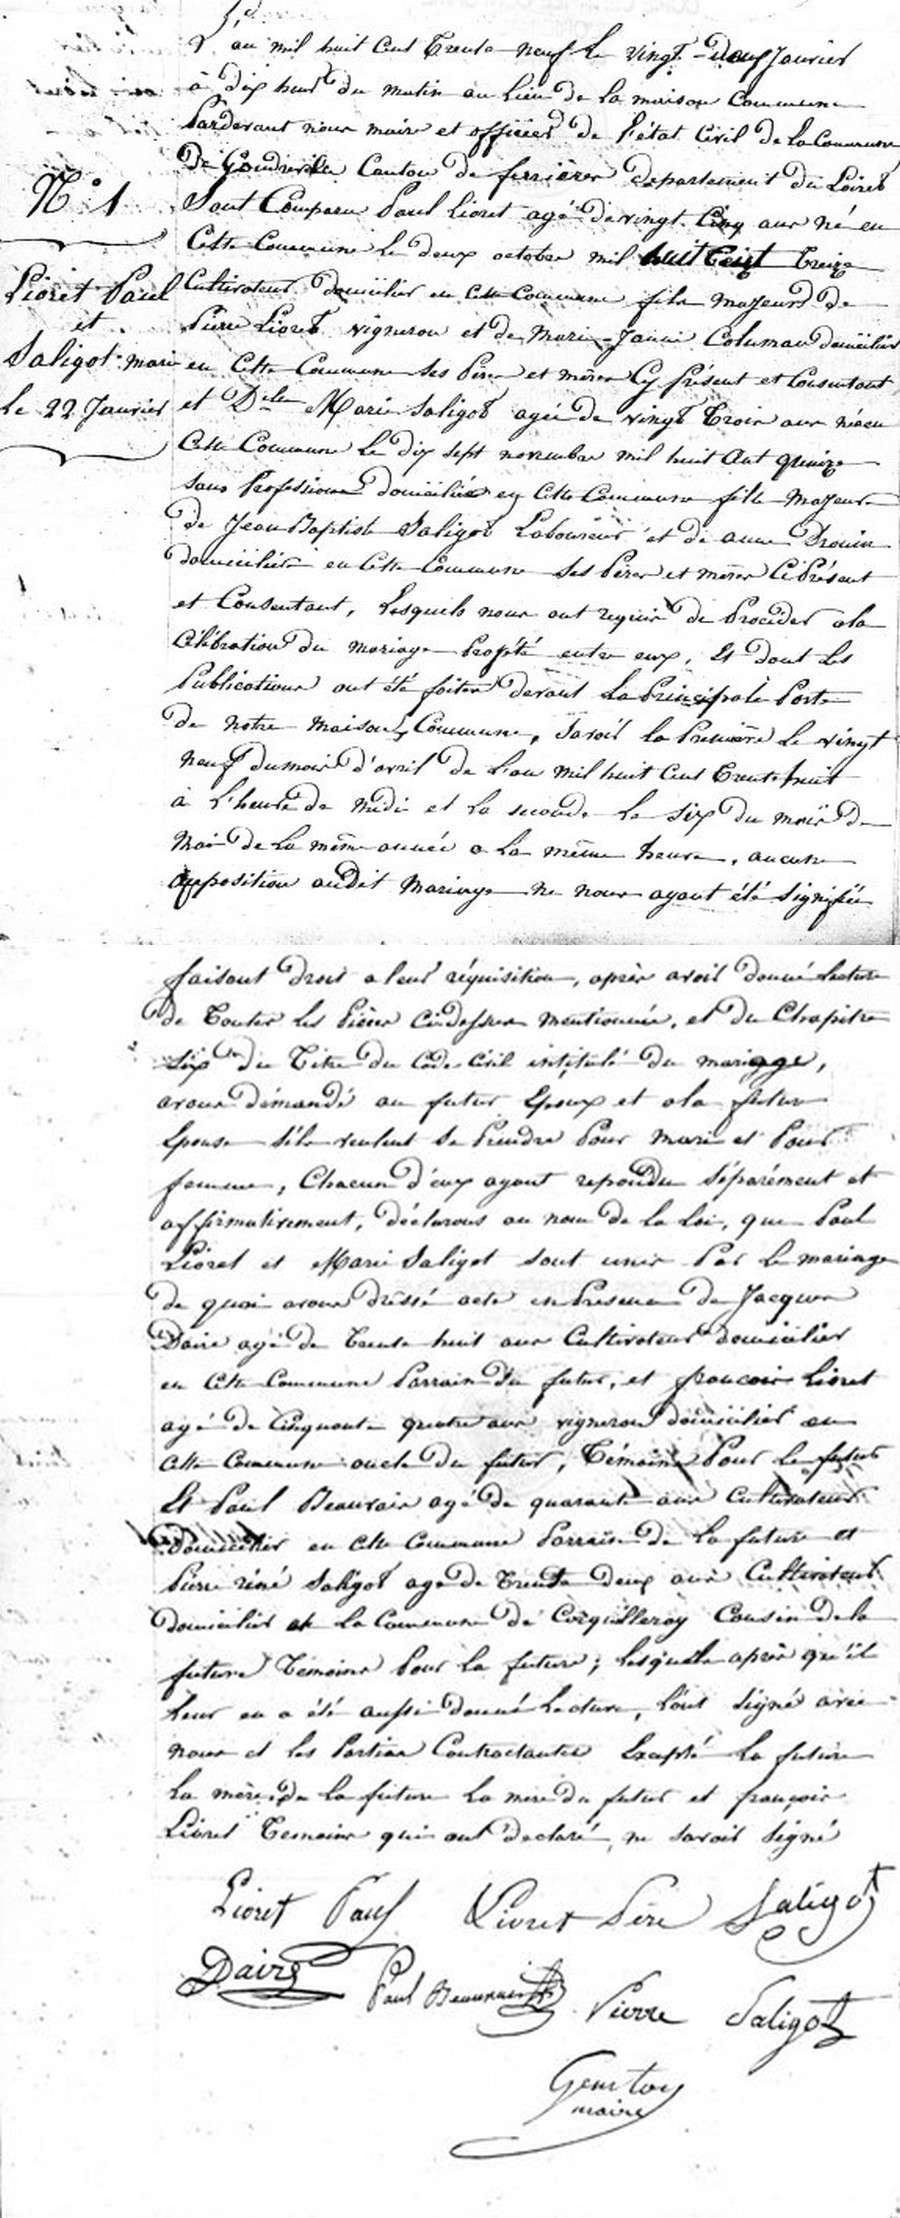 L'an mil huit cent trente neuf le vingt-deux Janvier
à dix heur du matin au Lieu de la maison Commune
Pardevant nous maire et officier de l'état Civil de la Commune
De Gondreville Canton de ferrières departement du Loiret
N° 1
Sont Comparu Paul Lioret agé de vingt Cinq ans né en
Cette Commune le deux octobre mil huit Cent treize
Lioret Paul
et
Saligot marie
le 22 Janvier
Cultivateur domicilier en cette Commune fils majeurs de
Pierre Lioret vigneron et de marie-Jeanne Columan domicilier
en Cette Commune Ses Père et mère Cy présent et Consentant
et Dlle Marie Saligot agée de vingt trois ans née en
Cette Commune le dix sept novembre mil huit Cent quinze
sans Profession domiciliée en Cette Commune fille majeur
de Jean Baptiste Saligot Laboureur et de anne Drouin
domicilier en Cette Commune Ses Père et mère Ci Présent
et Consentant, Lesquels nous ont requis de Procéder a la
Célébration du mariage Projeté entre eux, Et dont les
Publications ont été faites devant La Principale Porte
de notre maison Commune, Savoir la Première le vingt
neuf du mois d'avril de L'an mil huit cent trente huit
à L'heure de midi et la seconde le six du mois de
mai de la même année a la même heure, aucune
opposition audit mariage ne nous ayant été signifiée
faisant droit a leur réquisition, après avoir donné lecture
de toutes les Pièces Cidessus mentionnée, et du Chapitre
Six du Titre du Code Civil intitulé du mariage,
avons démandé au futur Epoux et a la future
Epouse s'ils veulent se Prendre Pour mari et Pour
femme, Chacun d'eux ayant repondu Séparément et
affirmativement, déclarons au nom de la loi, que Paul
Lioret et Marie Saligot sont unis Par le mariage
de quoi avons dréssé acte en Présence de Jacques
Daire agé de trente huit ans Cultivateur domicilier
en Cette Commune Parrain du futur, et françois Lioret
agé de Cinquante quatre ans vigneron domicilier en
Cette Commune oncle du futur, Témoins Pour le futur
Et Paul Beauvais agé de quarante ans Cultivateur
domicilier en cette Commune Parrain de la future et
Pierre réné Saligot age de trente deux ans Cultivateur
domicilier la Commune de Corquilleroy Cousin de la
future Témoins Pour la future; lesquels après qu'il
leur en a été aussi donné Lecture, l'ont signé avec
nous et les Parties Contractantes Excepté la future
la mère de la future la mère du futur et françois
Lioret Témoins qui ont déclaré ne savoir signé
Lioret Paul Lioret Père Saligot
Daire Paul Beauvais Pierre Saligot
maire